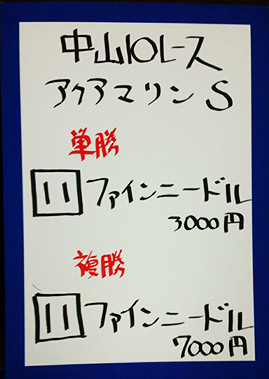 中山10レース
アクアマリンS
単勝
11 ファインニードル
3000円
複勝
11 ファインニードル
7000円